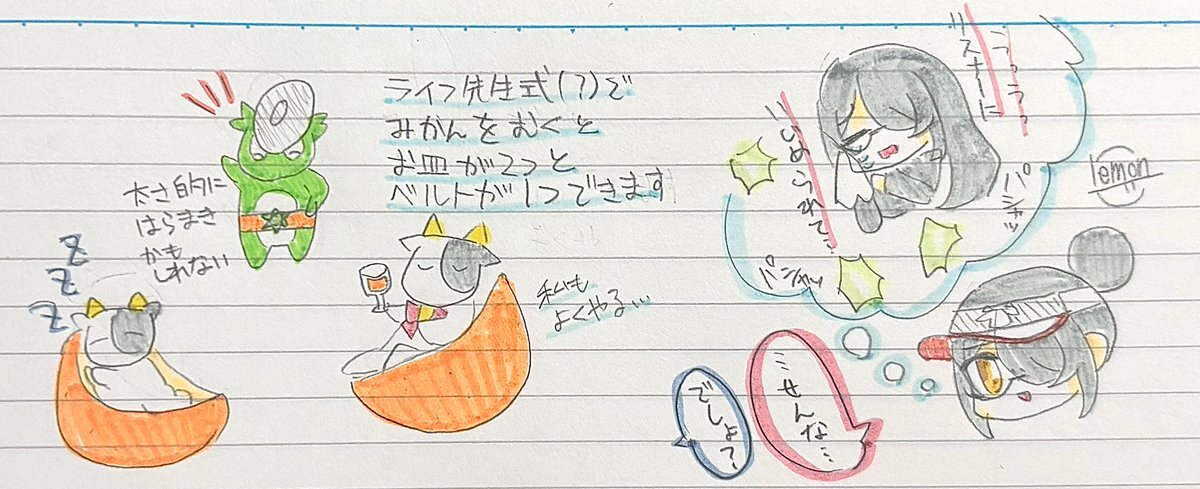 ライフ先生式(?)で
みかんをむくと
お皿が2つと
ベルトが1つできます
太さ的に
はらまき
かも
しれない
z
z
z
私も
よくやる…
うっうっ
リスナーに
いじめられて…
パシャッ
パシャッ
lemon
ミせんな…
でしょ?